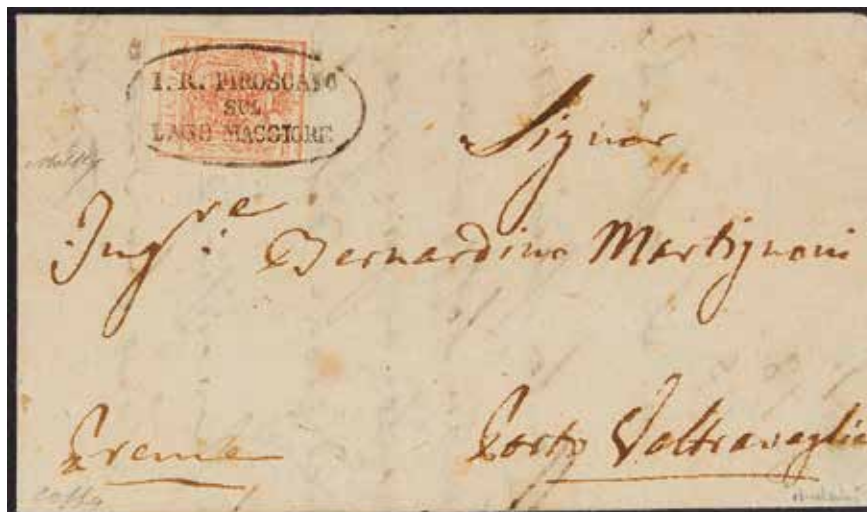 I. R. PIROSCAFO
SUL
LAGO MAGGIORE
Signor
Ing.re Bernardino Martignoni
Preme
Porto Valtravaglia